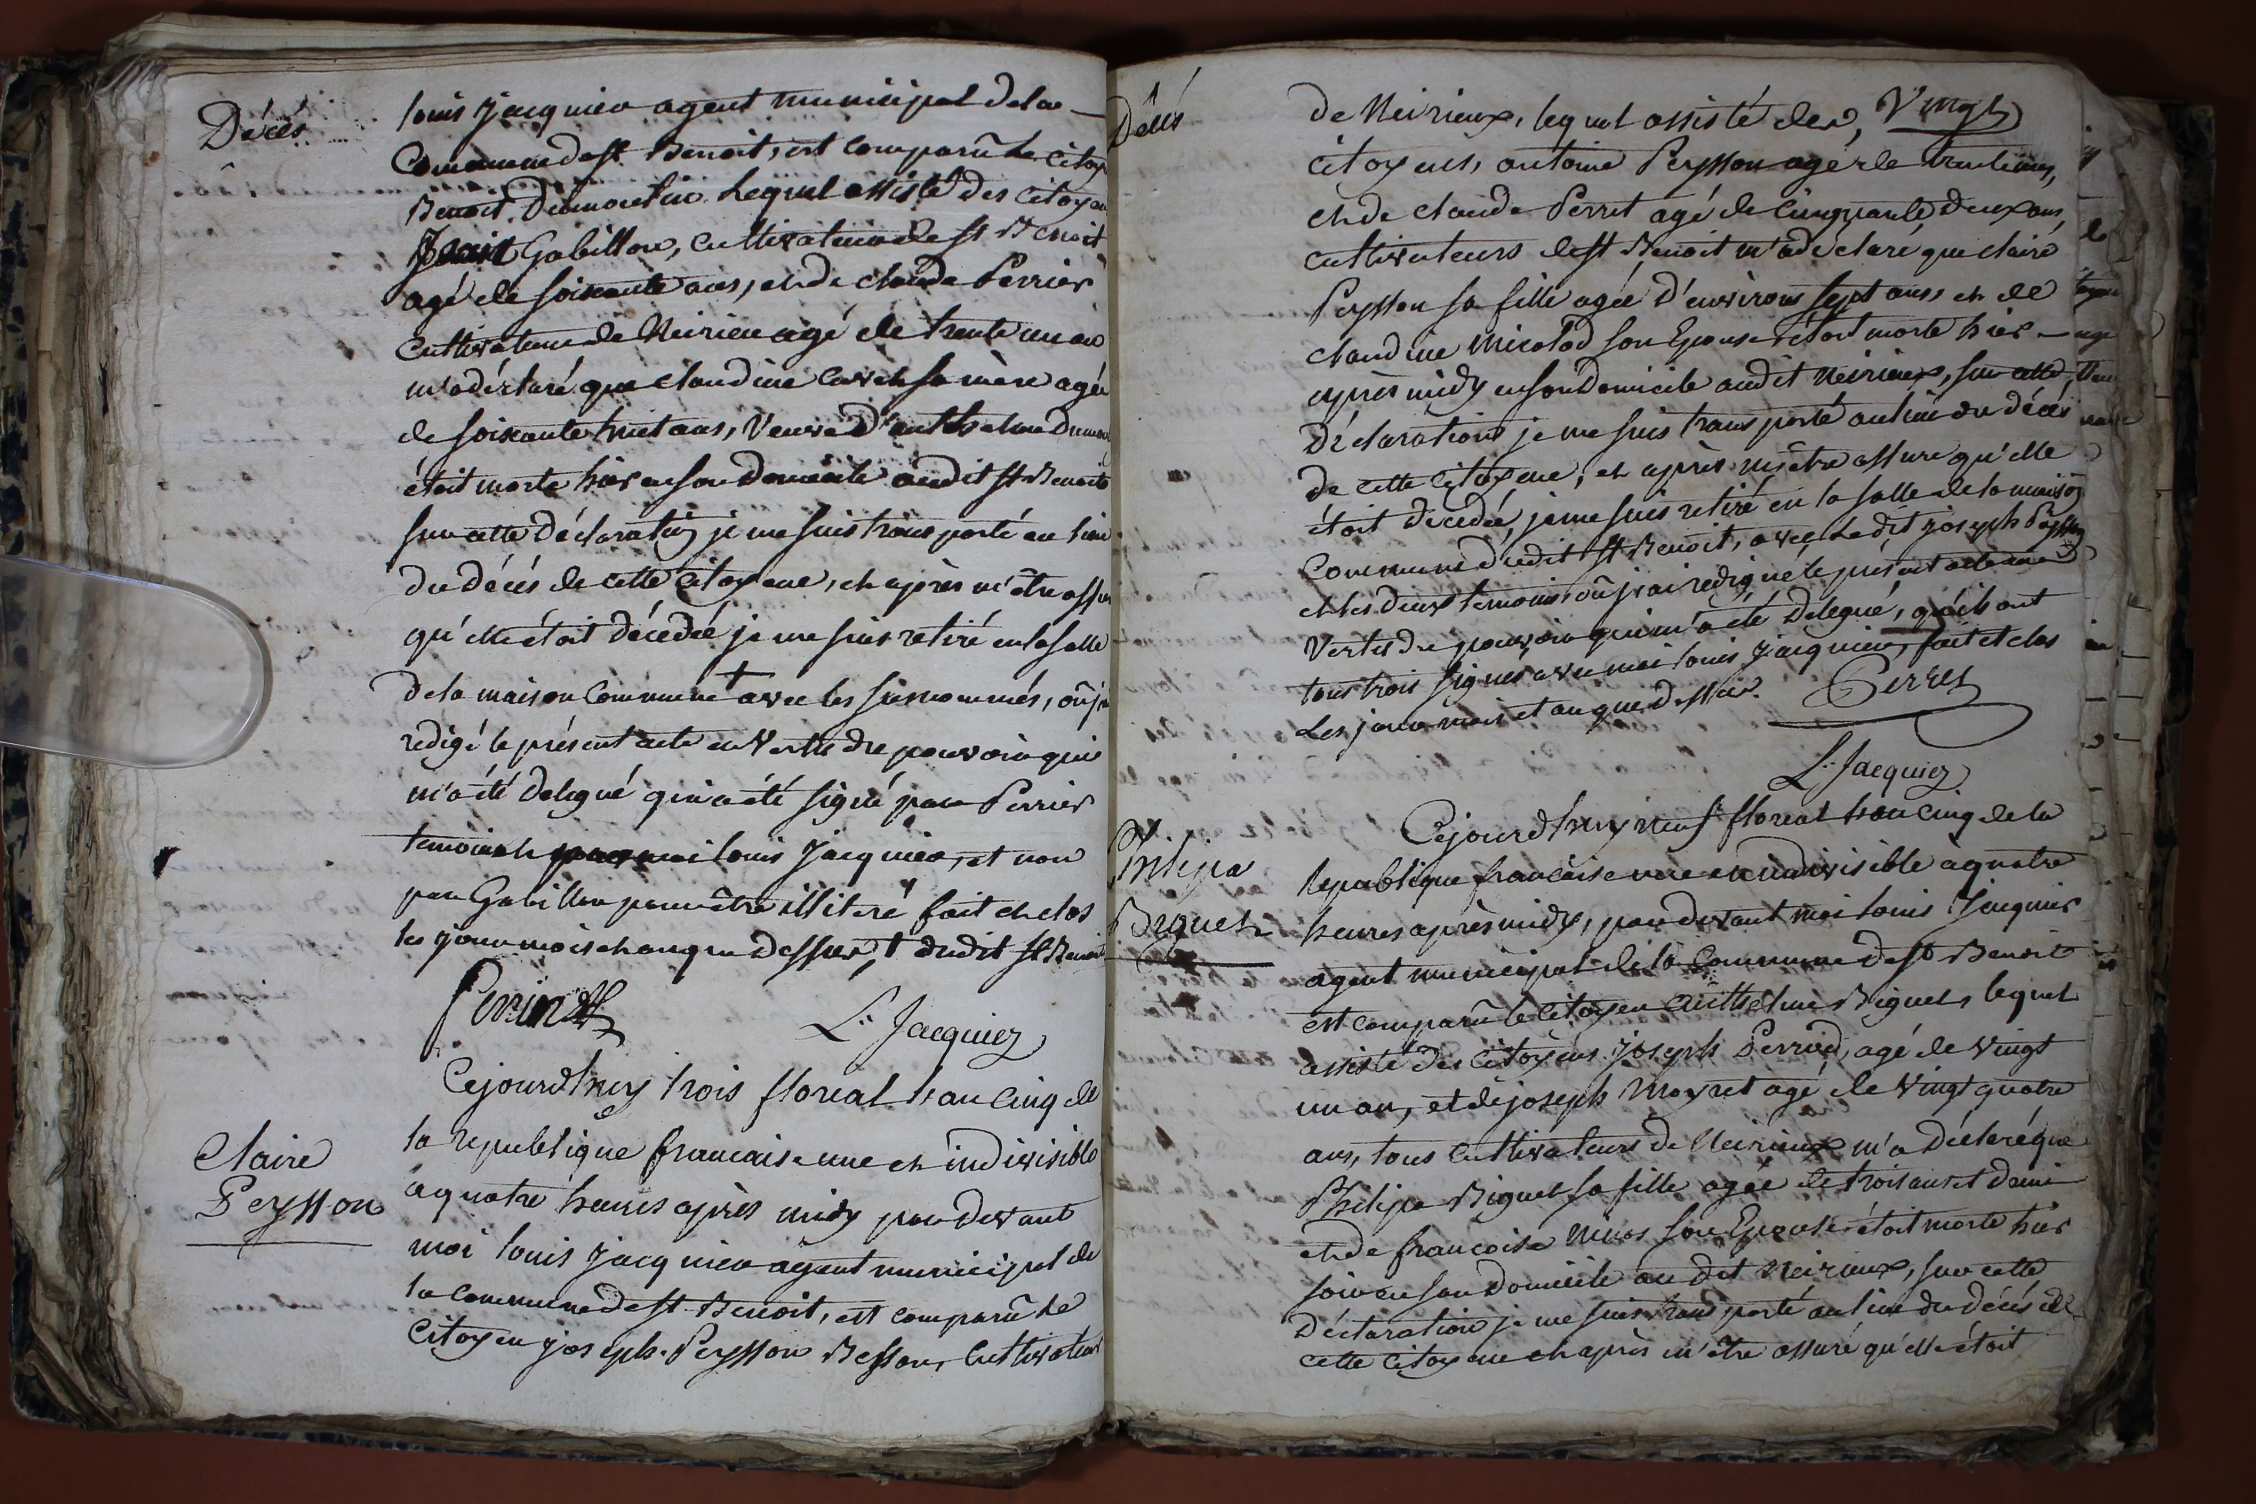 Décès
louis jacquier agent municipal de la
Commune de st Benoit, est comparû le citoy
Benoit Dumoulin lequel assisté des citoyen
Gabillon, cultivateur de st Benoit
agé de soixante ans, et de claude Perrier
cultivateur de Neirieu agé de trente un an
m'a déclaré que claudine sa mère agée
de soixante huit ans, veuve d'anthelme
étoit morte hier en son domicile audit st Benoit
sur cette déclaration je me suis transporté au lieu
du décès de cette citoyene, et après m'être assur
qu'elle étoit décedée je me suis retiré en la salle
de la maison commune † avec les susnommés, où j'ai
redigé le présent acte en vertu du pouvoir qui
m'a été delegué qui a été signé par Perrier
temoin et moi louis jacquier, et non
par Gabillon pour être illiteré fait et clos
les jour mois et an que dessus, † dudit st Benoit
L. Jacquier
Claire
Peysson
Cejourdhuy trois floreal l'an cinq de
la republique francaise une et indivisible
a quatre heures après midy par devant
moi louis jacquier agent municipal de
la commune de st Benoit, est comparû le
Citoyen joseph Peysson Besson, cultivateur
Décès
Vingt
de Neirieux, lequel assisté des
citoyens, antoine Peysson agé de
et de claude Perret agé de cinquante deux ans,
cultivateurs de st Benoit m'a déclaré que claire
Peysson sa fille agée d'environ sept ans et de
claudine Micolod son Epouse étoit morte hier
après midy en son domicile audit Neirieux, sur cette
déclaration je me suis transporté au lieu du décès
de cette citoyene, et après m'être assure qu'elle
étoit decedée, je me suis retiré en la salle de la maison
commune dudit st Benoit, avec le dit joseph Peysson
et les deux temoins où j'ai redigé le présent acte en
vertu du pouvoir qui m'a été delegué, qu'ils ont
tous trois signés avec moi louis jacquier, fait et clos
les jour mois et an que dessus.
Perret
L. Jacquier
Philipa
Biguet
Cejourdhuy neuf floreal l'an cinq de la
republique francaise une et indivisible a quatre
heures après midy, par devant moi louis Jacquier
agent municipal de la commune de st Benoit
est comparû le citoyen anthelme Biguet, lequel
assisté des citoyens joseph Perrod, agé de vingt
un an, et de joseph Moyret agé de vingt quatre
ans, tous cultivateurs de Neirieux m'a déclaré que
Philipa Biguet sa fille agée de trois ans et demi
et de francoise son Epouse étoit morte hier
soir en son domicile au dit Neirieux, sur cette
déclaration je me suis transporté au lieu du décès de
cette citoyene et après m'être assuré qu'elle étoit